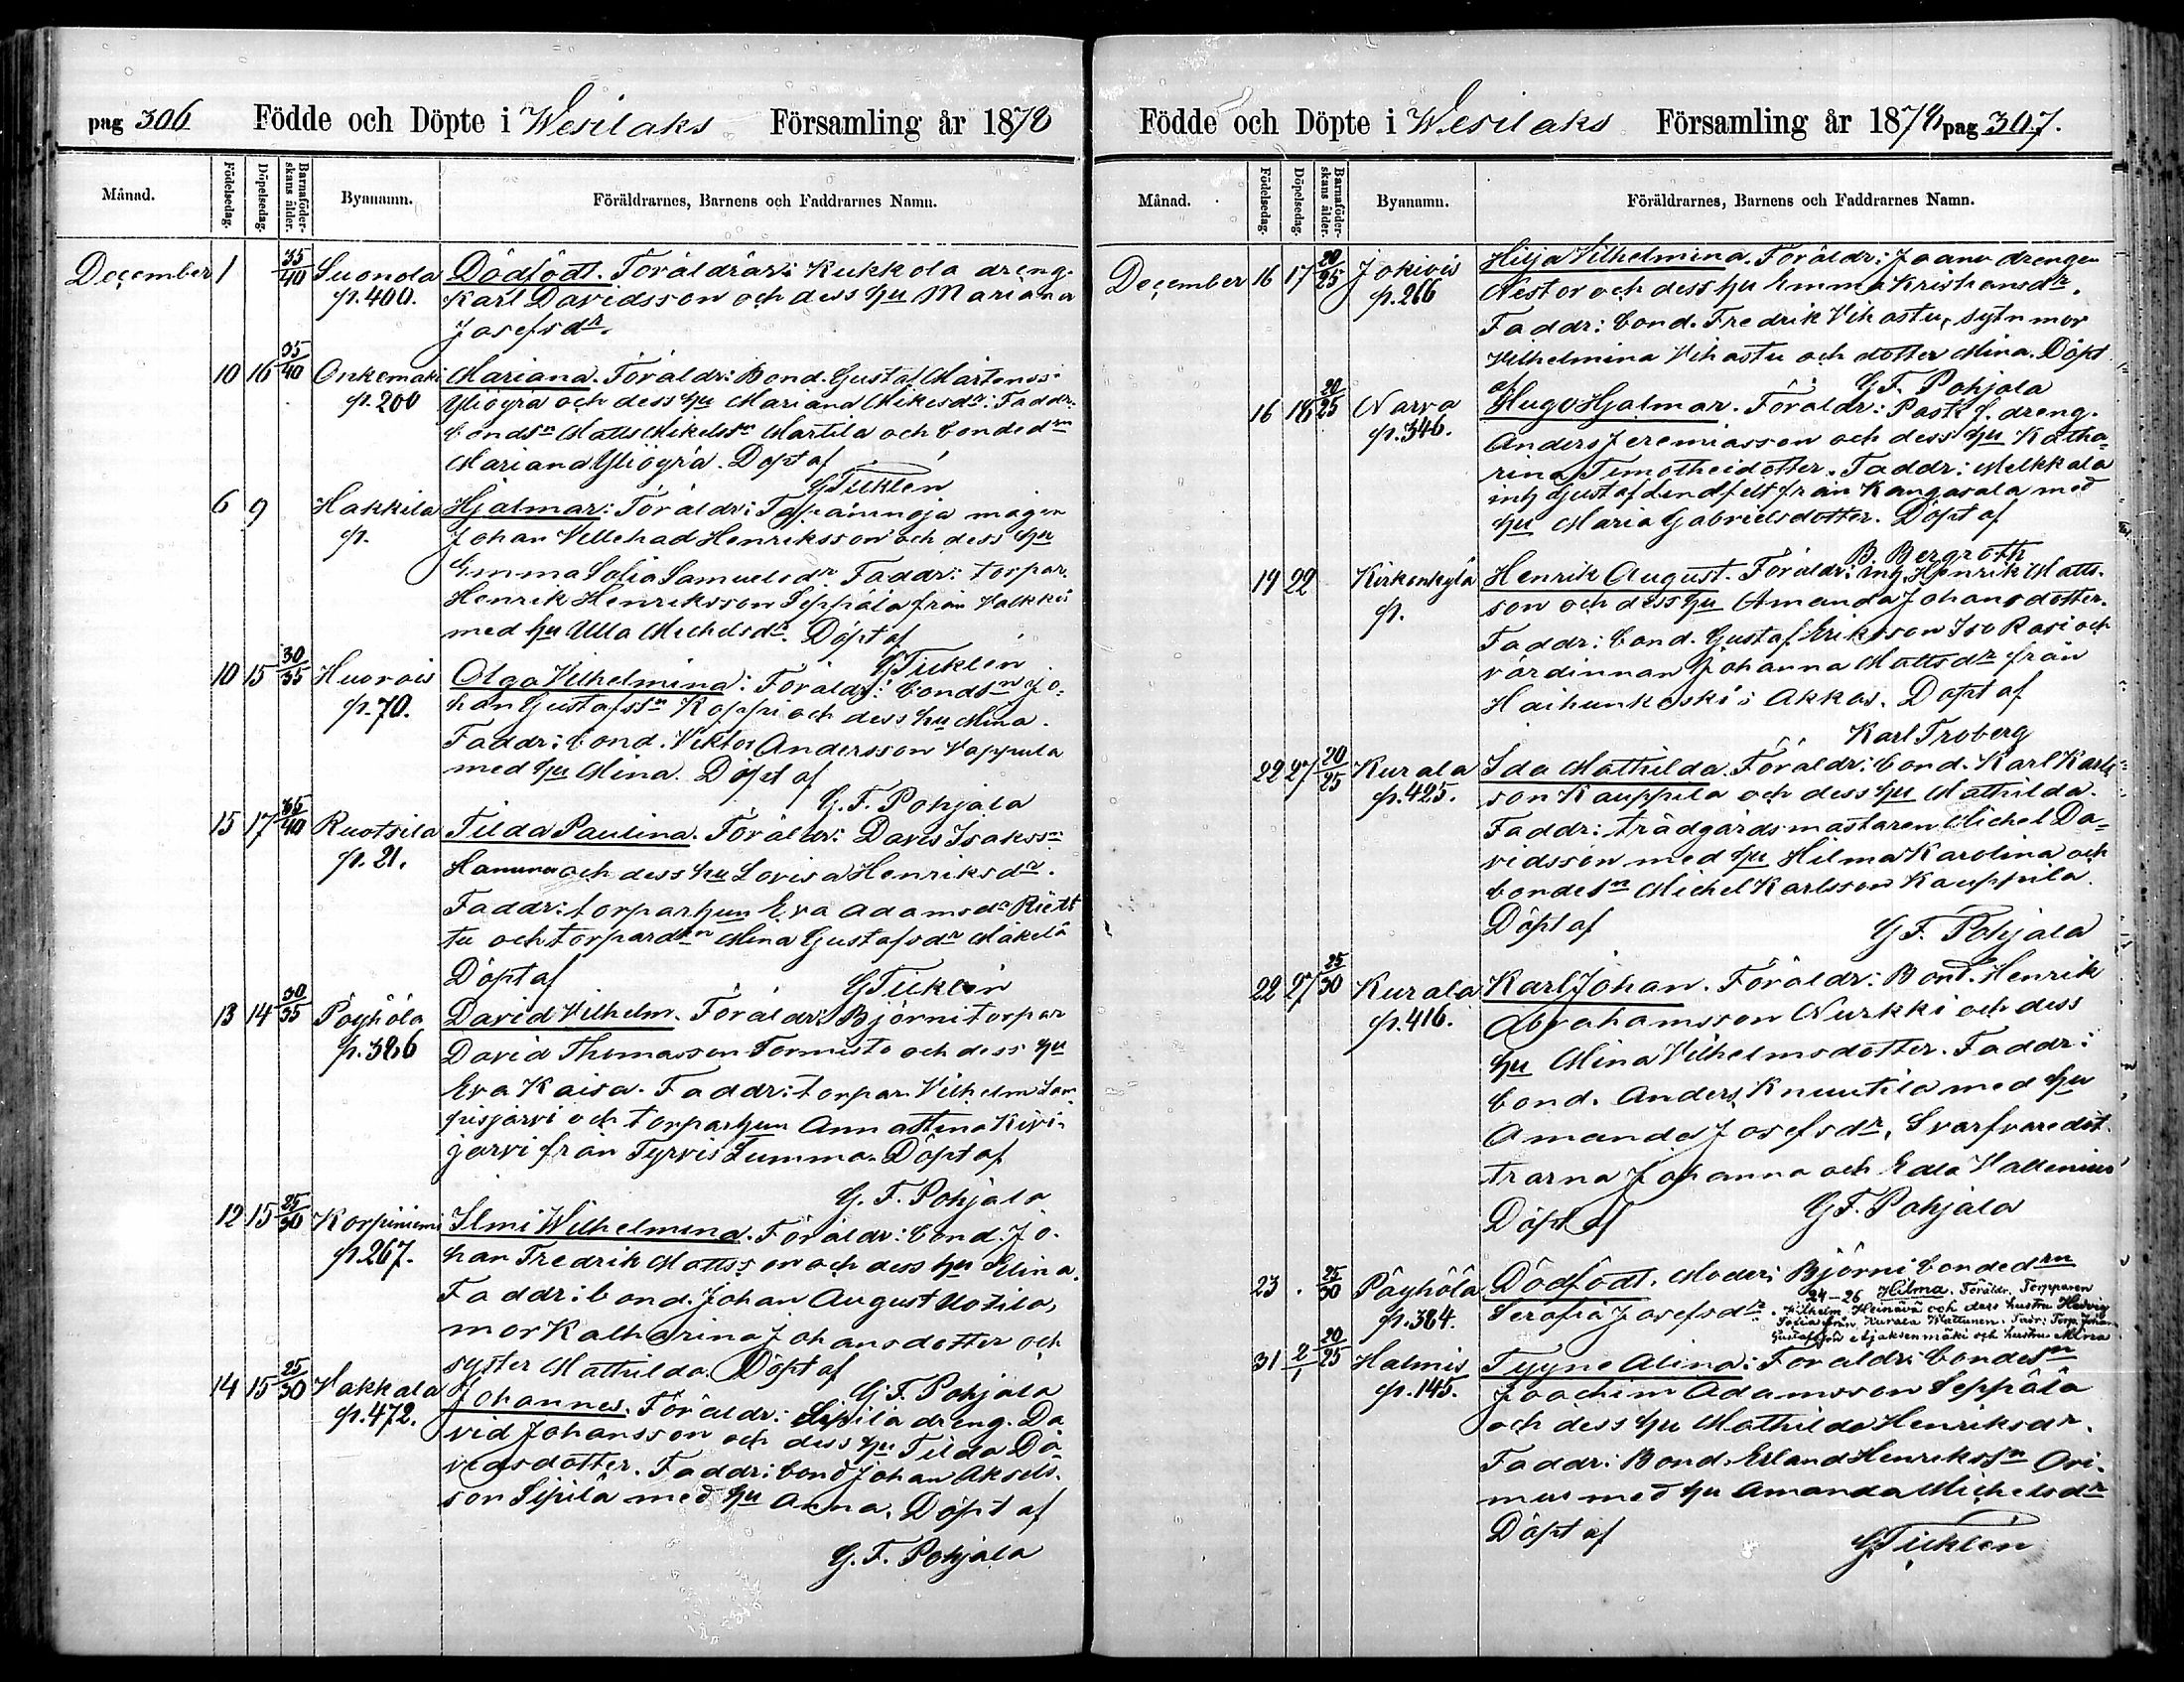 pag 306 Födde och Döpte i Wesilaks Församling år 1878
Månad. Födelsedag. Döpelsedag. Barnaföderskans ålder. Bynnamn. Föräldrarnes, Barnens och Faddrarnes Namn.
December 1 35/40 Suonola Dödfödt. Föräldrar: Kukkola dreng.
p. 400. Karl Davidsson och dess hu Mariana
Josefsdr.
10 16 35/40 Onkemäki Mariana. Föräldr: Bond. Gustaf Mårtenss.
p. 200 Yliöyrä och dess hu Mariana Mikesdr. Faddr:
bondsn Matts Mikelsn Martila och bondedrn
Mariana Yliöyrä. Döpt af
G Ticklén
6 9 Hakkila Hjalmar: Föräldr: Tapaninoja mågen
p. Johan Villehad Henriksson och dess hu
Emma Sofia Samuelsdr Faddr: torpar.
Henrik Henriksson Seppälä från Halkkis
med hu Ulla Michelsdr. Döpt af
G Ticklén
10 15 30/35 Huorois Olga Vilhelmina: Föräldr: bondsn Jo-
p. 70. han Gustafssn Koppi och dess hu Mina.
Faddr: bond. Viktor Andersson Vappula
med hu Mina. Döpt af
G. F. Pohjala
15 17 35/40 Ruotsila Tilda Paulina. Föräldr: Davis Isakssn
p. 21. Hanuna och dess hu Lovisa Henriksdr.
Faddr: torparhun Eva Adamsdr Riett
tu och torpardrn Mina Gustafsdr Mäkelä
Döpt af G Ticklén
13 14 30/35 Påyhölä David Vilhelm. Föräldr: Björni torpar
p. 386 David Thomasson Tormisto och dess hu
Eva Kaisa. Faddr: torpar. Vilhelm
pisjärvi och torparhun Anna Stina Kivi-
järvi från Tyrvis Lumma. Döpt af
G. F. Pohjala
12 15 25/30 Korpiniemi Ilmi Wilhelmina. Föräldr: bond. Jo-
p. 267. han Fredrik Mattsson och dess hu Mina.
Faddr: bond. Johan August Uotila,
mor Katharina Johansdotter och
syster Mathilda. Döpt af
G. F. Pohjala
14 15 25/30 Hakkala Johannes. Föräldr: Sipilä dreng. Da
p. 472. vid Johansson och dess hu Tilda Da-
vidsdotter. Faddr: bond Johan Aksels-
son Sipilä med hu Anna. Döpt af
G. F. Pohjala
Födde och Döpte i Wesilaks Församling år 1878 pag 307.
Månad. Födelsedag. Döpelsedag. Barnaföderskans ålder. Bynnamn. Föräldrarnes, Barnens och Faddrarnes Namn.
December 16 17 20/25 Jokiois Hilja Vilhelmina. Föräldr: Jaanu drengen
p. 266 Nestor och dess hu Emma Kristiansdr.
Faddr: bond. Fredrik Vihastu, sytn mor
Vilhelmina Vihastu och dotter Mina. Döpt
af G. F. Pohjala
16 18 20/25 Narva Hugo Hjalmar. Föräldr: Post f. dreng.
p. 346. Anders Jeremiasson och dess hu Katha-
rina Timotheidotter. Faddr: Melkkala
inh Gustaf Lindfelt från Kangasala med
hu Maria Gabrielsdotter. Döpt af
B Bergroth
19 22 Kirkonkylä Henrik August. Föräldr: inh. Henrik Matts-
p. son och dess hu Amanda Johansdotter.
Faddr: bond. Gustaf Eriksson Iso Rasi och
värdinnan Johanna Mattsdr från
Haihunkoski i Akkas. Döpt af
Karl Troberg
22 27 20/25 Kurala Ida Mathilda. Föräldr: bond. Karl Karls-
p. 425. son Kauppila och dess hu Mathilda.
Faddr: trädgårdsmästaren Michel Da-
vidsson med hu Hilma Karolina och
bondesn Michel Karlsson Kauppila.
Döpt af G. F. Pohjala
22 27 25/30 Kurala Karl Johan. Föräldr: Bond. Henrik
p. 416. Abrahamsson Nurkki och dess
hu Mina Vilhelmsdotter. Faddr:
bond. Anders Knuutila med hu
Amanda Josefsdr, Svarfvaredöt-
trarna Johanna och Eda Vallenius
Döpt af G F. Pohjala
23 . 25/30 Påyhölä Dödfödt. Moder: Björni bondedrn
p. 384. Serafia Josefsdr.
24-26 Hilma. Föräldr. Torpparen
Vilhelm Heinävä och dess hustru Hedvig
Sofia från Kurala Wattunen. Fadr: Torp. Johan
Gustafsson Ajaksenmäki och hustru Mina
31 2/1 20/25 Halmis Tyyne Alina: Föräldr: bondesn
p. 145. Joachim Adamsson Seppälä
och dess hu Mathilda Henriksdr.
Faddr: Bond. Erland Henrikssn Ori-
mus med hu Amanda Michelsdr
Döpt af G Ticklén